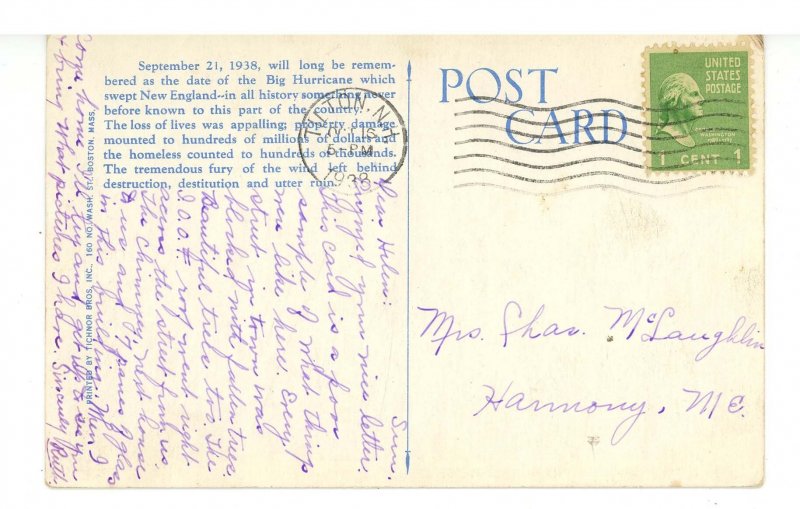 September 21, 1938, will long be remem-
bered as the date of the Big Hurricane which
swept New England--in all history something never
before known to this part of the country.
The loss of lives was appalling; property damage
mounted to hundreds of millions of dollars and
the homeless counted to hundreds of thousands.
The tremendous fury of the wind left behind
destruction, destitution and utter ruin.
PRINTED BY TICHNOR BROS., INC., 160 NO. WASH. ST., BOSTON, MASS.
POST
CARD
TILTON, N.H.
5-PM
1938
UNITED
STATES
POSTAGE
WASHINGTON
1 CENT 1
Sun.
Dear Helen:
Enjoyed your nice letter.
This card is a poor
sample of what things
were like here. Every
street in town was
blocked with fallen trees.
Beautiful trees too. The
I.O.O.F. roof went right
across the street from us
The chimney next house
to us and panes of glass
in this building. When I
come home I'll try and get up to see you
& bring what pictures I have. Sincerely, Ruth.
Mrs. Chas. McLaughlin
Harmony, ME.